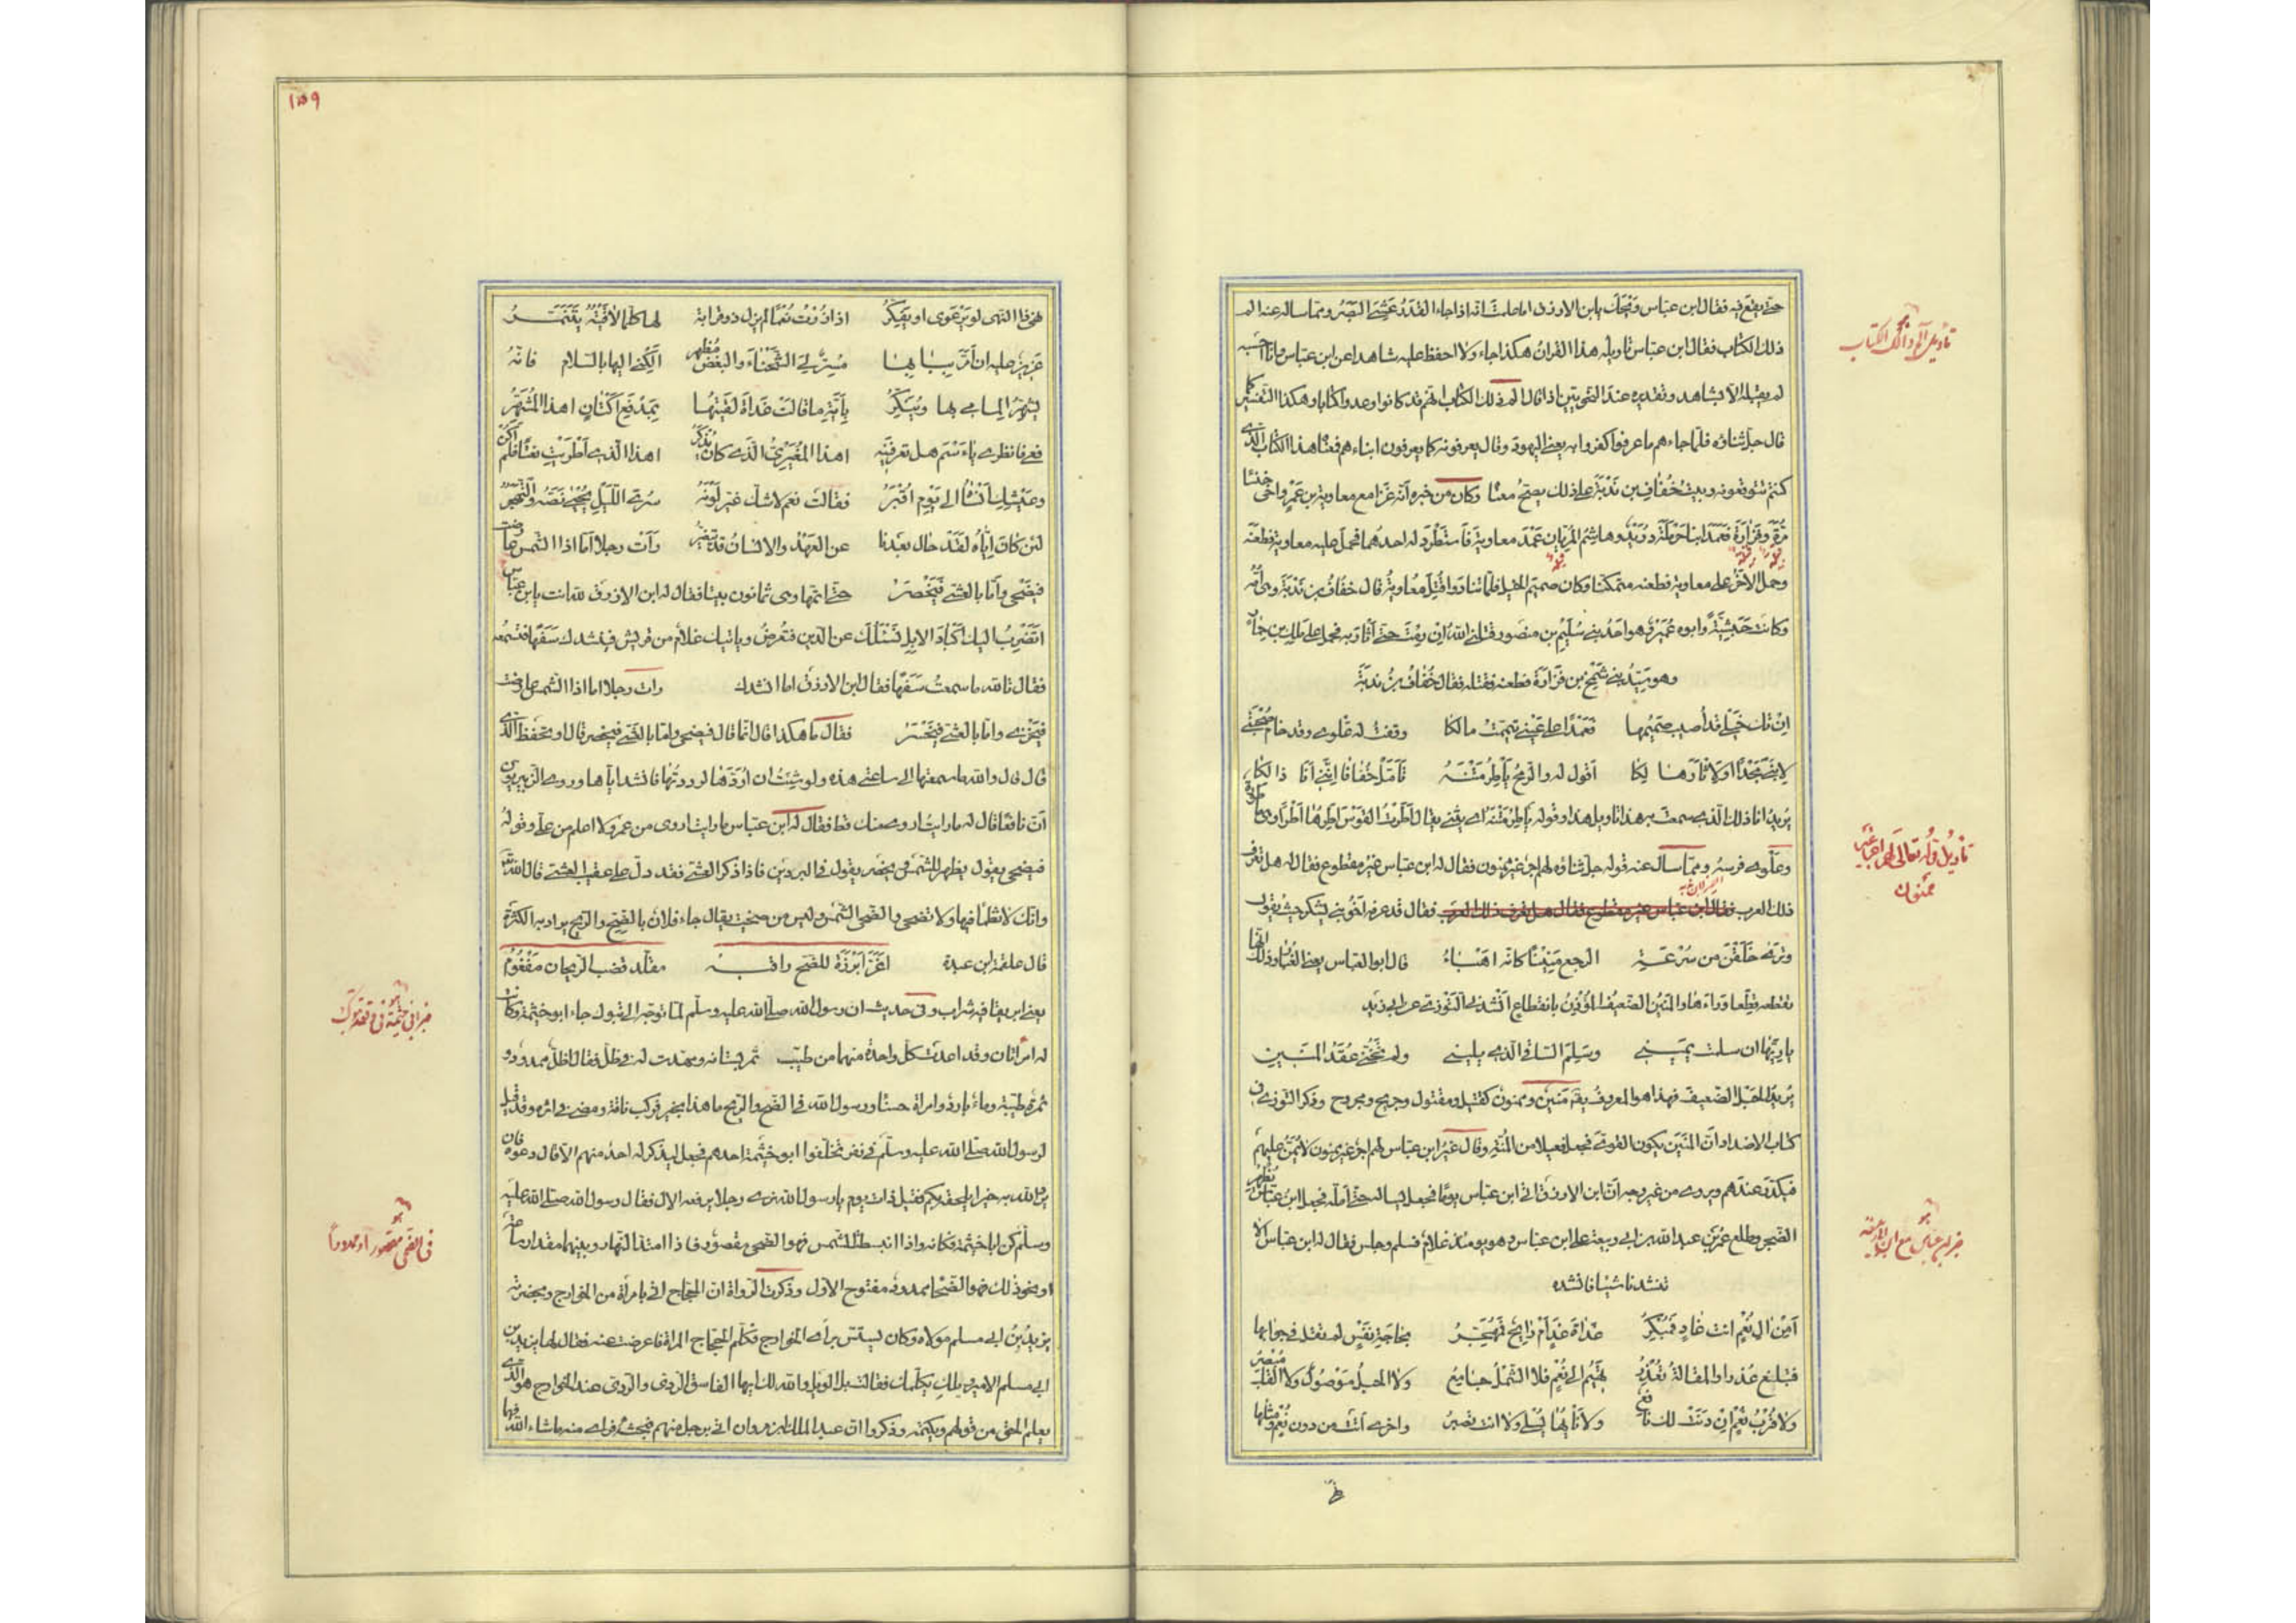 حتى يقع فيه فقال ابن عباس ويحك يا بن الازرق اما علمت انه اذا جاء القدر عشى البصر ومما سأله عنه الم
ذلك الكتاب فقال ابن عباس تاويله هذا القران هكذا جاء ولا احفظ عليه شاهدا عن ابن عباس وانا احسبه
لم يقبله الا بشاهد وتقديره عند النحويين اذا قال الم ذلك الكتاب انهم قد كانوا وعدوا كتابا وهكذا التفسير كما
قال جل ثناؤه فلما جاءهم ما عرفوا كفروا به يعنى اليهود وقال يعرفونه كما يعرفون ابناءهم فمعناه هذا الكتاب الذى
كنتم تتوقعونه وبيت خُفاف بن نَدْبَة على ذلك يصح معناه وكان من خبره انه غزا مع معاوية بن عمرو اخى خنساء
مُرّة وفزارة فعمد ابنا حرملة دُرَيد وهاشم المريان عمد معاوية فاستطرد له احدهما فحمل عليه معاوية فطعنه
وحمل الاخر على معاوية فطعنه متمكنا وكان صميم الخيل فلما تنادوا قُتِل معاوية قال خفاف بن ندبة وهى امه
وكانت حبشية وابوه عُمَير وهو احد بنى سُلَيم بن منصور قتلنى الله ان رِمْتُ حتى أثأر به فحمل على مالك بن حمار
وهو سيد بنى شَمخ بن فزارة فطعنه فقتله فقال خُفاف بن ندبة
ان تك خيلى قد أصيب صميمها فعمدا على عينى تيممت مالكا وقفت له علوى وقد خام صحبتى
لابنى مجدا او لاثار هالكا اقول له والرمح يأطر متنه تأمل خفافا اننى انا ذالكا
يريد انا ذلك الذى سمعت به هذا تاويل هذا وقوله يأطر متنه اى يثنى يقال أطرت القوس آطرها أطرا وهى مأطورة
وعلوى فرسه ومما سأل عنه قوله جل ثناؤه لهم اجر غير ممنون فقال له ابن عباس غير مقطوع فقال له هل تعرف
ذلك العرب فقال ابن عباس غير مقطوع فقال هل تعرف ذلك العرب فقال قد عرفه اخو بنى يشكر حيث يقول
وترى خلفهن من سرعة الرجع منينا كانه اهباء قال ابو العباس يعنى الغبار وذلك انها
تقطعه قطعا وراءها والمنين الضعيف المؤذن بانقطاع انشدنى التوزى عن ابى زيد
يا ريها ان سلمت يمينى وسلم الساقى الذى يلينى ولم تخنى عقد المنين
يريد الحبل الضعيف فهذا هو المعروف يقال منين وممنون كقتيل ومقتول وجريح ومجروح وذكر التوزى فى
كتاب الاضداد ان المنين يكون القوى فجعله فعيلا من المُنّة وقال غير ابن عباس لهم اجر غير ممنون لا يُمَن عليهم
فيكدر عندهم ويروى من غير وجه ان ابن الازرق اتى ابن عباس يوما فجعل يسأله حتى امله فجعل ابن عباس يظهر
الضجر وطلع عمر بن عبد الله بن ابى ربيعة على ابن عباس وهو يومئذ غلام فسلم وجلس فقال له ابن عباس الا
تنشدنا شيئا فانشده
أمن ال نعم انت غاد فمبكر غداة غد ام رائح فمهجر بحاجة نفس لم تقل فى جوابها
فتبلغ عذرا والمقالة تعذر تهيم الى نعم فلا الشمل جامع ولا الحبل موصول ولا القلب مقصر
ولا قرب نعم ان دنت لك نافع ولا نأيها يسلى ولا انت تصبر واخرى اتت من دون نعم ومثلها
نهى
تأويل الم ذلك الكتاب
تاويل قوله تعالى لهم اجر غير ممنون
خبر ابن عباس مع ابن الازرق
١٥٩
نهى ذا النهى لو يرعوى او يفكر اذا زرت نعما لم يزل ذو قرابة لها كلما لاقيته يتنمر
عزيز عليه ان امر ببابها مسر لى الشحناء والبغض مظهر الكنى اليها بالسلام فانه
يشهر المامى بها وينكر بآية ما قالت غداة لقيتها بمدفع اكنان اهذا المشهر
قفى فانظرى يا اسم هل تعرفينه اهذا المغيرى الذى كان يذكر اهذا الذى اطريت نعتا فلم اكن
وعيشك انساه الى يوم اقبر فقالت نعم لا شك غير لونه سرى الليل يحيى نصه والتهجر
لئن كان اياه لقد حال بعدنا عن العهد والانسان قد يتغير رأت رجلا اما اذا الشمس عارضت
فيضحى واما بالعشى فيخصر حتى اتمها وهى ثمانون بيتا فقال له ابن الازرق لله انت يا بن عباس
انضرب اليك اكباد الابل نسئلك عن الدين فتعرض ويأتيك غلام من قريش فينشدك سفها فتسمعه
فقال تالله ما سمعت سفها فقال ابن الازرق اما انشدك رات رجلا اما اذا الشمس عارضت
فيخزى واما بالعشى فيخسر فقال ما هكذا قال انما قال فيضحى واما بالعشى فيخصر قال او تحفظ الذى
قال قال والله ما سمعتها الا ساعتى هذه ولو شئت ان اردها لرددتها فانشده اياها وروى الزبيريون
ان نافعا قال له ما رايت اروى منك قط فقال له ابن عباس ما رايت اروى من عمر ولا اعلم من على وقوله
فيضحى يقول يظهر للشمس ويخصر يقول فى البردين فاذا ذكر العشى فقد دل على عقيب العشى قال الله تعالى
وانك لا تظمأ فيها ولا تضحى والضحى الشمس وليس من ضحيت يقال جاء فلان بالضيح والريح يراد به الكثرة
قال علقمة ابن عبدة اغر ابرزه للضح راقبه مقلد قضب الريحان مفغوم
يعنى ابريقا فيه شراب وفى حديث ان رسول الله صلى الله عليه وسلم لما توجه الى تبوك جاء ابو خيثمة وكانت
له امراتان وقد اعدت كل واحدة منهما من طيب ثمر بستانه ومهدت له فى ظل فقال اظل ممدود و
ثمرة طيبة وماء بارد وامراة حسناء ورسول الله فى الضح والريح ما هذا بخير فركب ناقته ومضى فى اثره وقد قيل
لرسول الله صلى الله عليه وسلم فى نفر تخلفوا ابو خيثمة احدهم فجعل لا يذكر له احد منهم الا قال دعوه فان
يرد الله به خيرا يلحقه بكم فقيل ذات يوم يا رسول الله نرى رجلا يرفعه الآل فقال رسول الله صلى الله عليه
وسلم كن ابا خيثمة فكانه واذا انبسطت الشمس فهو الضحى مقصور فاذا امتد النهار وبينهما مقدار ساعة
او نحو ذلك فهو الضحاء ممدود مفتوح الاول وذكرت الرواة ان الحجاج اتى بامرأة من الخوارج وبحضرته
يزيد بن ابى مسلم مولاه وكان يستسر برأى الخوارج فكلم الحجاج المراة فاعرضت عنه فقال لها يزيد بن
ابى مسلم الامير ويلك يكلمك فقالت بل الويل والله لك ايها الفاسق الردى والردى عند الخوارج هو الذى
يعلم الحق من قولهم ويكتمه وذكروا ان عبد الملك بن مروان اتى برجل منهم فبحثه فراى منه ما شاء الله فهما
خبر ابى خيثمة فى تبوك
فى الضحى مقصورا وممدودا